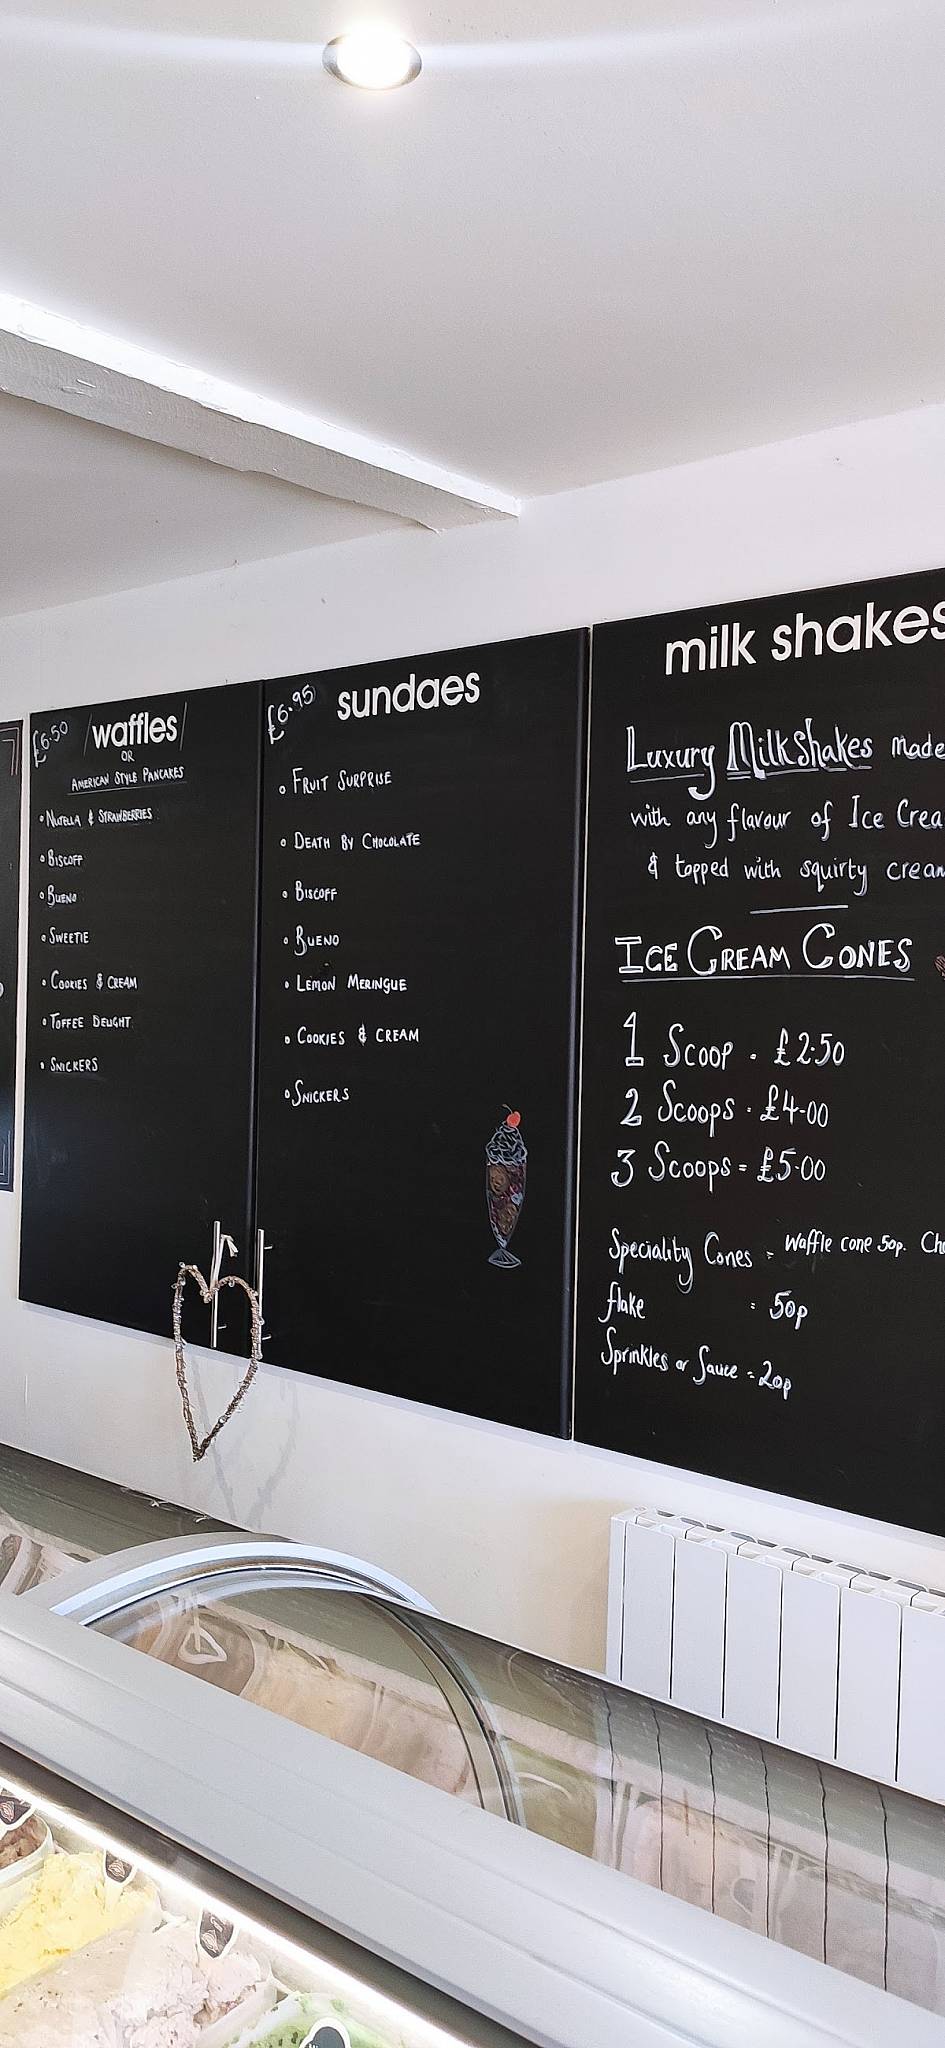 £6.50
waffles
OR
AMERICAN STYLE PANCAKES
NUTELLA & STRAWBERRIES
BISCOFF
BUENO
SWEETIE
COOKIES & CREAM
TOFFEE DELIGHT
SNICKERS
£6.95
sundaes
FRUIT SURPRISE
DEATH BY CHOCOLATE
BISCOFF
BUENO
LEMON MERINGUE
COOKIES & CREAM
SNICKERS
milk shakes
Luxury MilkShakes made
with any flavour of Ice Crea
& topped with squirty cream
ICE CREAM CONES
1 Scoop - £2.50
2 Scoops - £4-00
3 Scoops = £5-00
Speciality Cones = Waffle cone 50p. Cho
flake : 50p
Sprinkles or Sauce = 20p